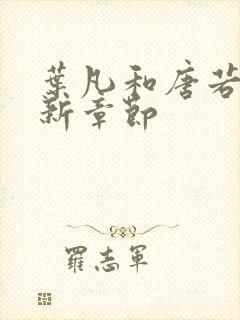 葉凡和唐若
新章節
羅志軍